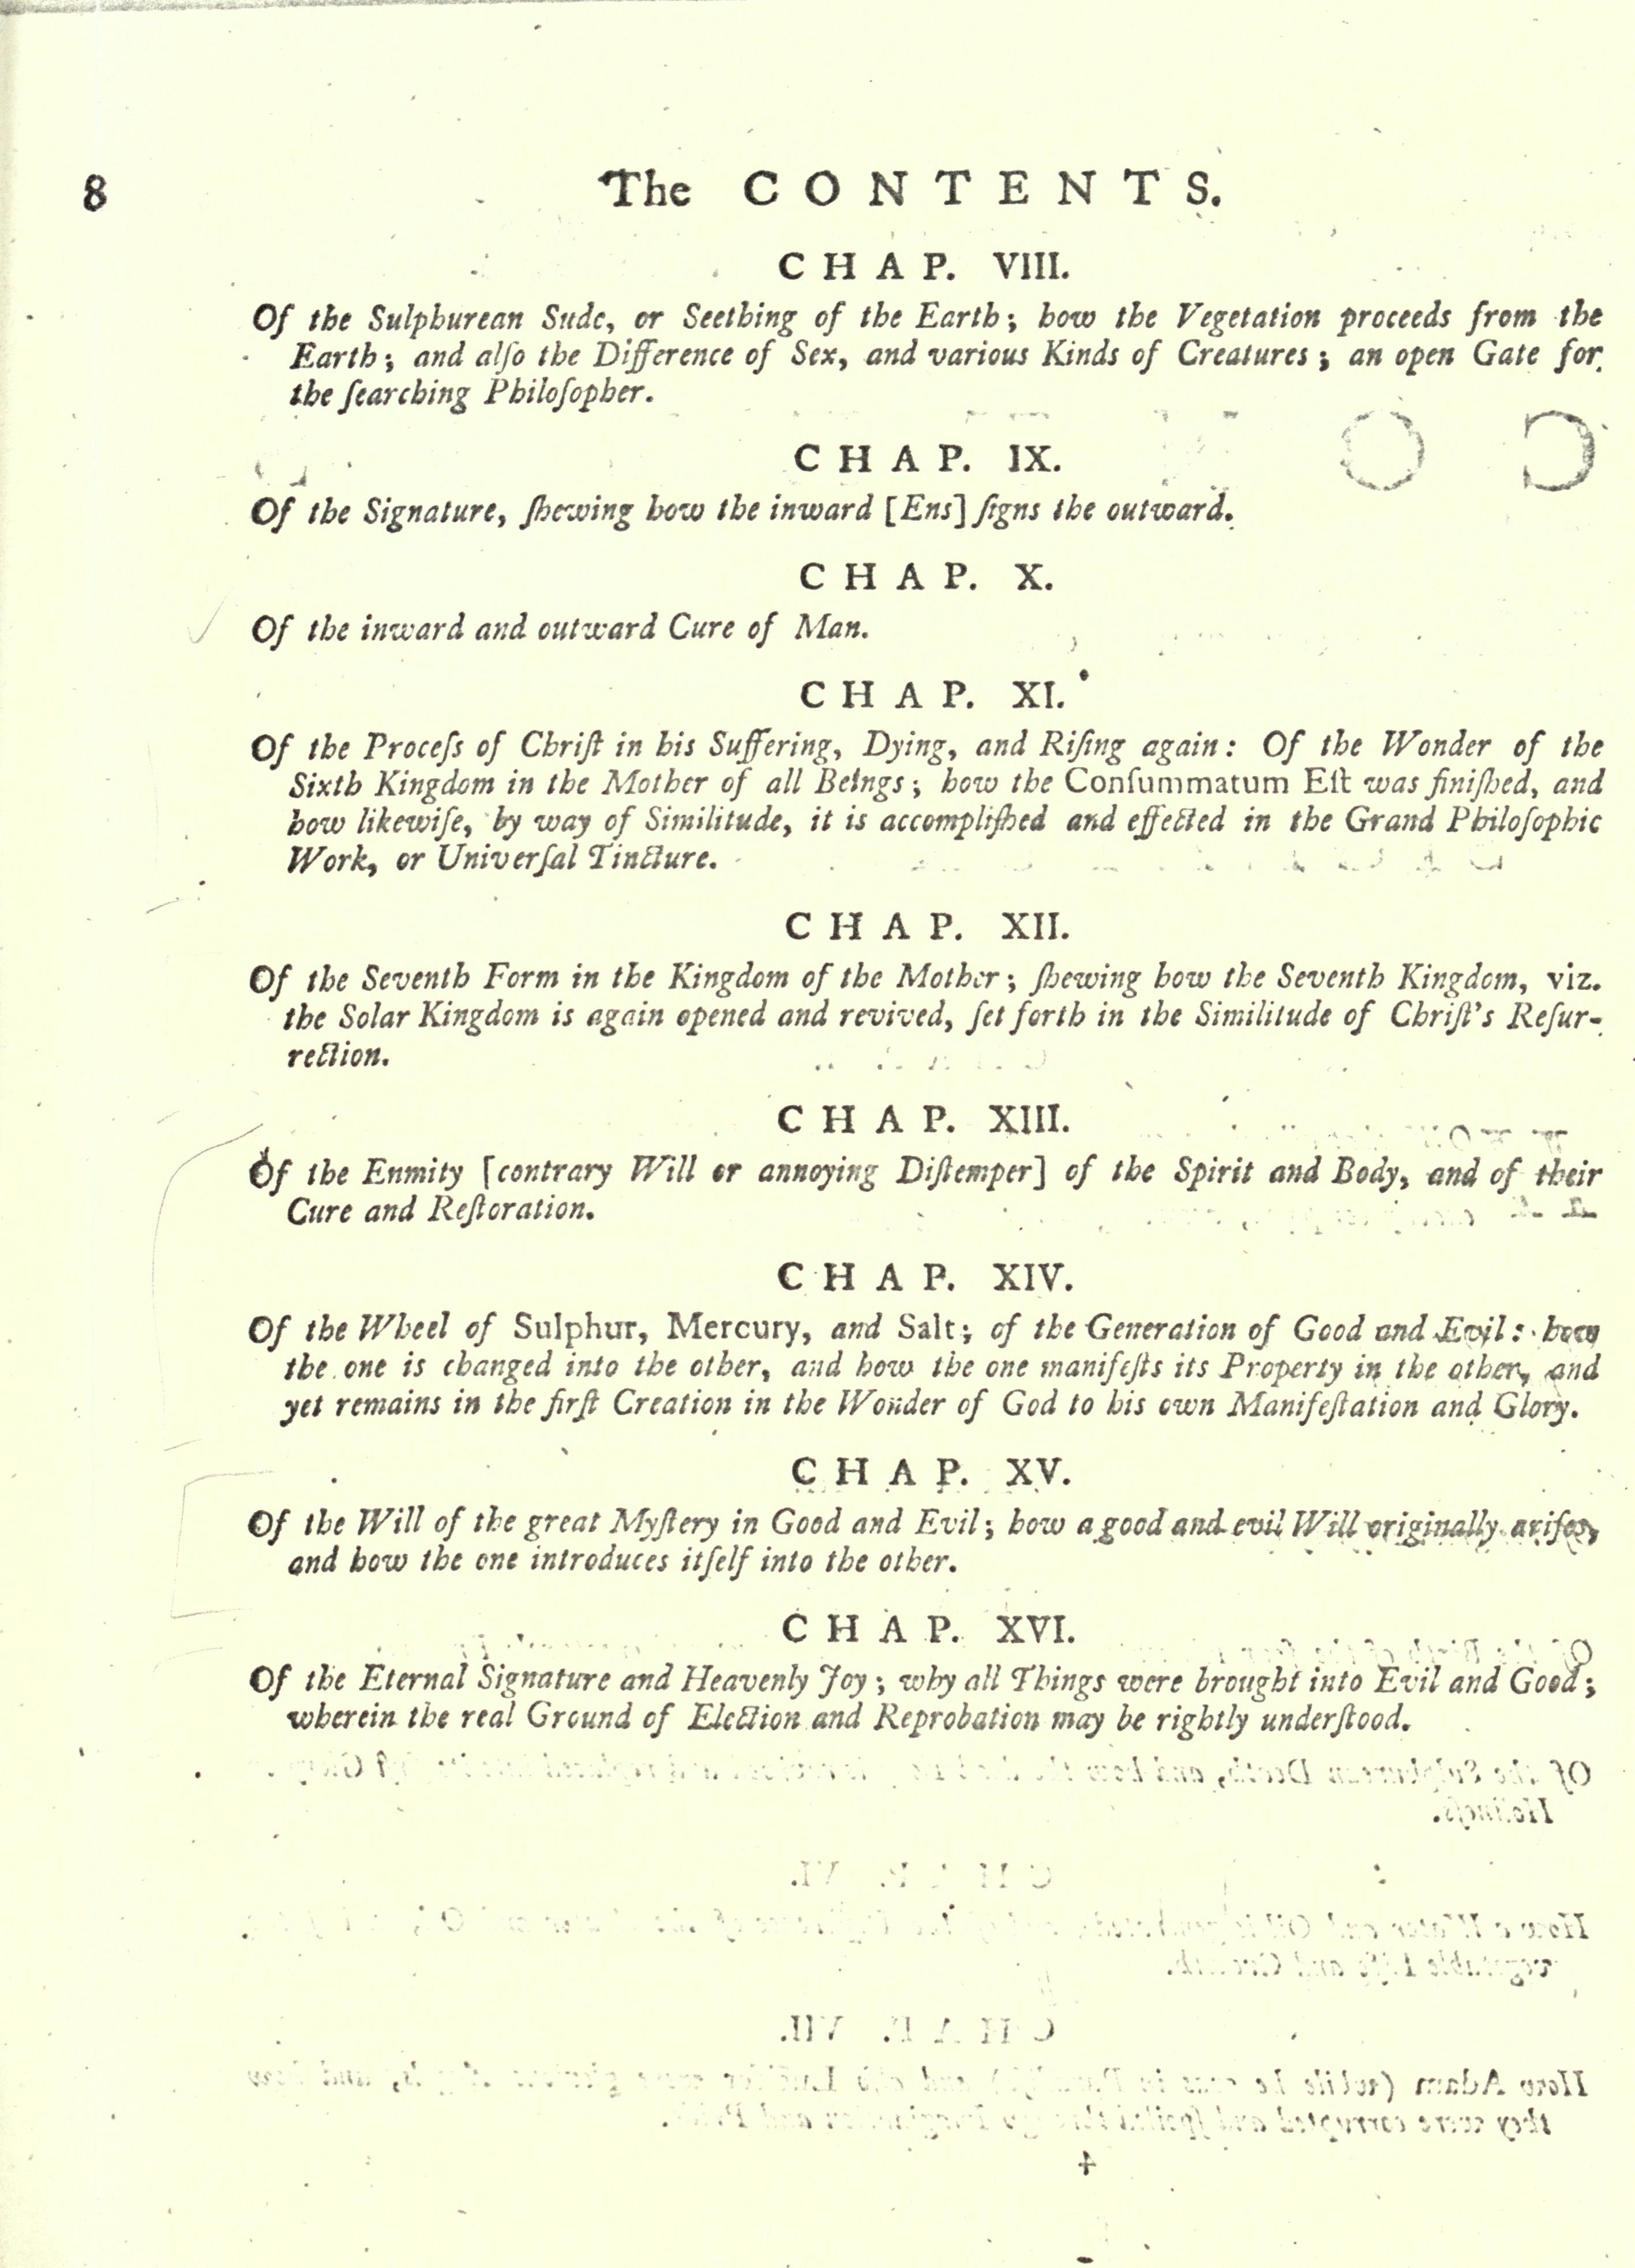 8 The CONTENTS.
CHAP. VIII.
Of the Sulphurean Sude, or Seething of the Earth; how the Vegetation proceeds from the
Earth; and alſo the Difference of Sex, and various Kinds of Creatures; an open Gate for
the ſearching Philoſopher.
CHAP. IX.
Of the Signature, ſhewing how the inward [Ens] ſigns the outward.
CHAP. X.
Of the inward and outward Cure of Man.
CHAP. XI.
Of the Proceſs of Chriſt in his Suffering, Dying, and Riſing again: Of the Wonder of the
Sixth Kingdom in the Mother of all Beings; how the Conſummatum Eſt was finiſhed, and
how likewiſe, by way of Similitude, it is accompliſhed and effected in the Grand Philoſophic
Work, or Univerſal Tincture.
CHAP. XII.
Of the Seventh Form in the Kingdom of the Mother; ſhewing how the Seventh Kingdom, viz.
the Solar Kingdom is again opened and revived, ſet forth in the Similitude of Chriſt's Reſur-
rection.
CHAP. XIII.
Of the Enmity [contrary Will or annoying Diſtemper] of the Spirit and Body, and of their
Cure and Reſtoration.
CHAP. XIV.
Of the Wheel of Sulphur, Mercury, and Salt; of the Generation of Good and Evil: how
the one is changed into the other, and how the one manifeſts its Property in the other, and
yet remains in the firſt Creation in the Wonder of God to his own Manifeſtation and Glory.
CHAP. XV.
Of the Will of the great Myſtery in Good and Evil; how a good and evil Will originally ariſes,
and how the one introduces itſelf into the other.
CHAP. XVI.
Of the Eternal Signature and Heavenly Joy; why all Things were brought into Evil and Good;
wherein the real Ground of Election and Reprobation may be rightly underſtood.